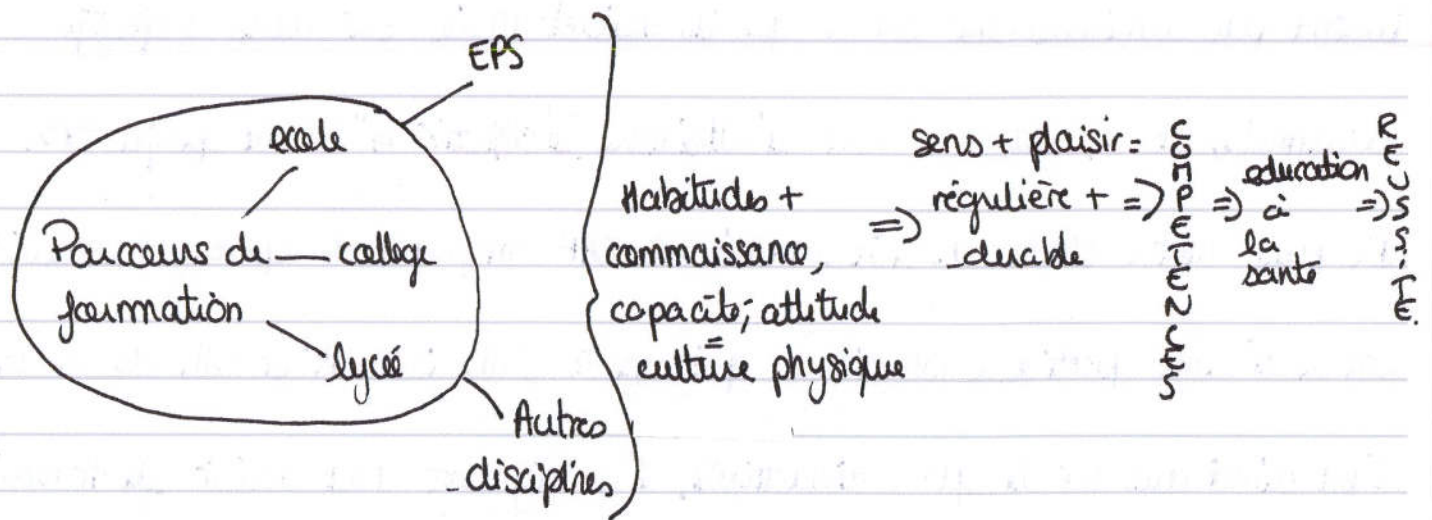 EPS
ecole
Parcours de — college
formation
lyceé
Autres
disciplines
Habitudes +
connaissance,
capacité; attitude
=
culture physique
=>
sens + plaisir =
régulière +
durable
=>
COMPETENCES
=>
education
à
la
santé
=>
REUSSITE.